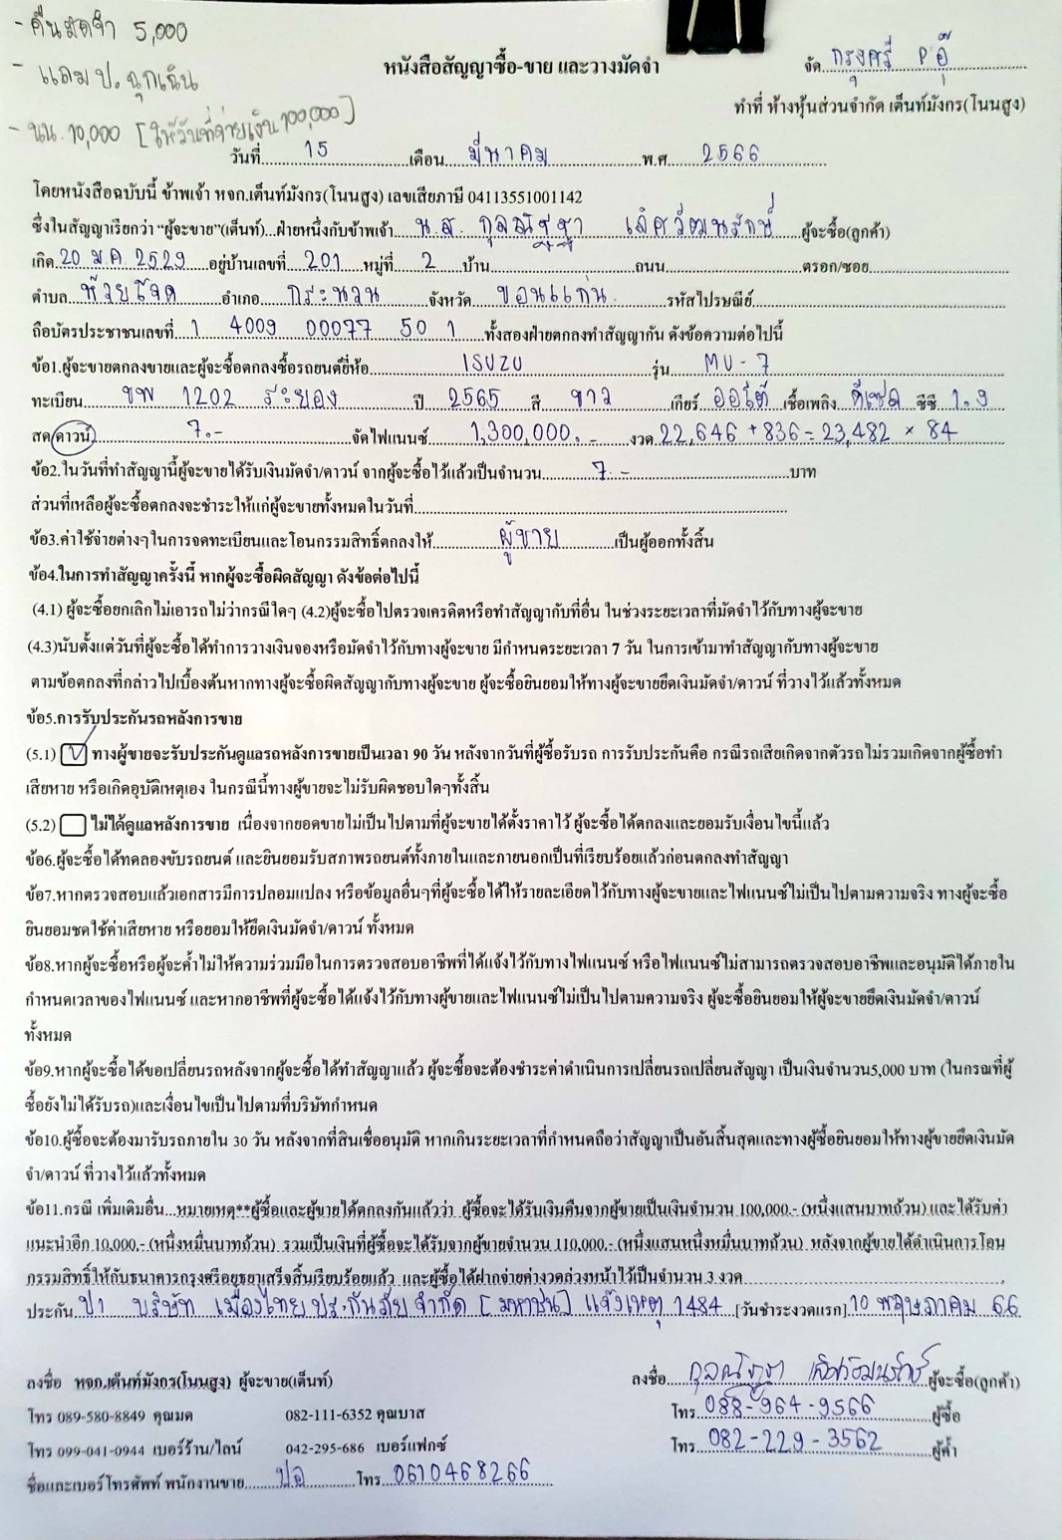 - คืนมัดจำ 5,000
- แถม ป. ฉุกเฉิน
- นน. 10,000 [ให้วันที่จ่ายเงิน 100,000]
หนังสือสัญญาซื้อ-ขาย และวางมัดจำ
จัด กรุงศรี P อุ๊
ทำที่ ห้างหุ้นส่วนจำกัด เต็นท์มังกร(โนนสูง)
วันที่ 15 เดือน มีนาคม พ.ศ. 2566
โดยหนังสือฉบับนี้ ข้าพเจ้า หจก.เต็นท์มังกร(โนนสูง) เลขเสียภาษี 04113551001142
ซึ่งในสัญญาเรียกว่า “ผู้จะขาย”(เต็นท์)...ฝ่ายหนึ่งกับข้าพเจ้า น.ส. กุลณัฐฐา เลิศวัฒนรักษ์ ผู้จะซื้อ(ลูกค้า)
เกิด 20 ม.ค. 2529 อยู่บ้านเลขที่ 201 หมู่ที่ 2 บ้าน ถนน ตรอก/ซอย
ตำบล ห้วยโจด อำเภอ กระนวน จังหวัด ขอนแก่น รหัสไปรษณีย์
ถือบัตรประชาชนเลขที่ 1 4009 00077 50 1 ทั้งสองฝ่ายตกลงทำสัญญากัน ดังข้อความต่อไปนี้
ข้อ1.ผู้จะขายตกลงขายและผู้จะซื้อตกลงซื้อรถยนต์ยี่ห้อ ISUZU รุ่น MU-7
ทะเบียน ขพ 1202 ระยอง ปี 2565 สี ขาว เกียร์ ออโต้ เชื้อเพลิง ดีเซล ซีซี 1.9
สด/ดาวน์ 7.- จัดไฟแนนซ์ 1,300,000.- งวด 22,646 + 836 = 23,482 × 84
ข้อ2.ในวันที่ทำสัญญานี้ผู้จะขายได้รับเงินมัดจำ/ดาวน์ จากผู้จะซื้อไว้แล้วเป็นจำนวน 7.- บาท
ส่วนที่เหลือผู้จะซื้อตกลงจะชำระให้แก่ผู้จะขายทั้งหมดในวันที่
ข้อ3.ค่าใช้จ่ายต่างๆในการจดทะเบียนและโอนกรรมสิทธิ์ตกลงให้ ผู้ขาย เป็นผู้ออกทั้งสิ้น
ข้อ4.ในการทำสัญญาครั้งนี้ หากผู้จะซื้อผิดสัญญา ดังข้อต่อไปนี้
(4.1) ผู้จะซื้อยกเลิกไม่เอารถไม่ว่ากรณีใดๆ (4.2)ผู้จะซื้อไปตรวจเครดิตหรือทำสัญญากับที่อื่น ในช่วงระยะเวลาที่มัดจำไว้กับทางผู้จะขาย
(4.3)นับตั้งแต่วันที่ผู้จะซื้อได้ทำการวางเงินจองหรือมัดจำไว้กับทางผู้จะขาย มีกำหนดระยะเวลา 7 วัน ในการเข้ามาทำสัญญากับทางผู้จะขาย
ตามข้อตกลงที่กล่าวไปเบื้องต้นหากทางผู้จะซื้อผิดสัญญากับทางผู้จะขาย ผู้จะซื้อยินยอมให้ทางผู้จะขายยึดเงินมัดจำ/ดาวน์ ที่วางไว้แล้วทั้งหมด
ข้อ5.การรับประกันรถหลังการขาย
(5.1) ✓ ทางผู้ขายจะรับประกันดูแลรถหลังการขายเป็นเวลา 90 วัน หลังจากวันที่ผู้ซื้อรับรถ การรับประกันคือ กรณีรถเสียเกิดจากตัวรถไม่รวมเกิดจากผู้ซื้อทำ
เสียหาย หรือเกิดอุบัติเหตุเอง ในกรณีนี้ทางผู้ขายจะไม่รับผิดชอบใดๆทั้งสิ้น
(5.2) ไม่ได้ดูแลหลังการขาย เนื่องจากยอดขายไม่เป็นไปตามที่ผู้จะขายได้ตั้งราคาไว้ ผู้จะซื้อได้ตกลงและยอมรับเงื่อนไขนี้แล้ว
ข้อ6.ผู้จะซื้อได้ทดลองขับรถยนต์ และยินยอมรับสภาพรถยนต์ทั้งภายในและภายนอกเป็นที่เรียบร้อยแล้วก่อนตกลงทำสัญญา
ข้อ7.หากตรวจสอบแล้วเอกสารมีการปลอมแปลง หรือข้อมูลอื่นๆที่ผู้จะซื้อได้ให้รายละเอียดไว้กับทางผู้จะขายและไฟแนนซ์ไม่เป็นไปตามความจริง ทางผู้จะซื้อ
ยินยอมชดใช้ค่าเสียหาย หรือยอมให้ยึดเงินมัดจำ/ดาวน์ ทั้งหมด
ข้อ8.หากผู้จะซื้อหรือผู้จะค้ำไม่ให้ความร่วมมือในการตรวจสอบอาชีพที่ได้แจ้งไว้กับทางไฟแนนซ์ หรือไฟแนนซ์ไม่สามารถตรวจสอบอาชีพและอนุมัติได้ภายใน
กำหนดเวลาของไฟแนนซ์ และหากอาชีพที่ผู้จะซื้อได้แจ้งไว้กับทางผู้ขายและไฟแนนซ์ไม่เป็นไปตามความจริง ผู้จะซื้อยินยอมให้ผู้จะขายยึดเงินมัดจำ/ดาวน์
ทั้งหมด
ข้อ9.หากผู้จะซื้อได้ขอเปลี่ยนรถหลังจากผู้จะซื้อได้ทำสัญญาแล้ว ผู้จะซื้อจะต้องชำระค่าดำเนินการเปลี่ยนรถเปลี่ยนสัญญา เป็นเงินจำนวน5,000 บาท (ในกรณที่ผู้
ซื้อยังไม่ได้รับรถ)และเงื่อนไขเป็นไปตามที่บริษัทกำหนด
ข้อ10.ผู้ซื้อจะต้องมารับรถภายใน 30 วัน หลังจากที่สินเชื่ออนุมัติ หากเกินระยะเวลาที่กำหนดถือว่าสัญญาเป็นอันสิ้นสุดและทางผู้ซื้อยินยอมให้ทางผู้ขายยึดเงินมัด
จำ/ดาวน์ ที่วางไว้แล้วทั้งหมด
ข้อ11.กรณี เพิ่มเติมอื่น...หมายเหตุ**ผู้ซื้อและผู้ขายได้ตกลงกันแล้วว่า ผู้ซื้อจะได้รับเงินคืนจากผู้ขายเป็นเงินจำนวน 100,000.- (หนึ่งแสนบาทถ้วน) และได้รับค่า
แนะนำอีก 10,000.- (หนึ่งหมื่นบาทถ้วน) รวมเป็นเงินที่ผู้ซื้อจะได้รับจากผู้ขายจำนวน 110,000.- (หนึ่งแสนหนึ่งหมื่นบาทถ้วน) หลังจากผู้ขายได้ดำเนินการโอน
กรรมสิทธิ์ให้กับธนาคารกรุงศรีอยุธยาเสร็จสิ้นเรียบร้อยแล้ว และผู้ซื้อได้ฝากจ่ายค่างวดล่วงหน้าไว้เป็นจำนวน 3 งวด
ประกัน ป1 บริษัท เมืองไทยประกันภัย จำกัด [มหาชน] แจ้งเหตุ 1484 [วันชำระงวดแรก] 10 พฤษภาคม 66
ลงชื่อ หจก.เต็นท์มังกร(โนนสูง) ผู้จะขาย(เต็นท์)
ลงชื่อ กุลณัฐฐา เลิศวัฒนรักษ์ ผู้จะซื้อ(ลูกค้า)
โทร 089-580-8849 คุณมด 082-111-6352 คุณบาส
โทร 088-964-9566 ผู้ซื้อ
โทร 099-041-0944 เบอร์ร้าน/ไลน์ 042-295-686 เบอร์แฟกซ์
โทร 082-229-3562 ผู้ค้ำ
ชื่อและเบอร์โทรศัพท์ พนักงานขาย ปอ โทร 0610468266